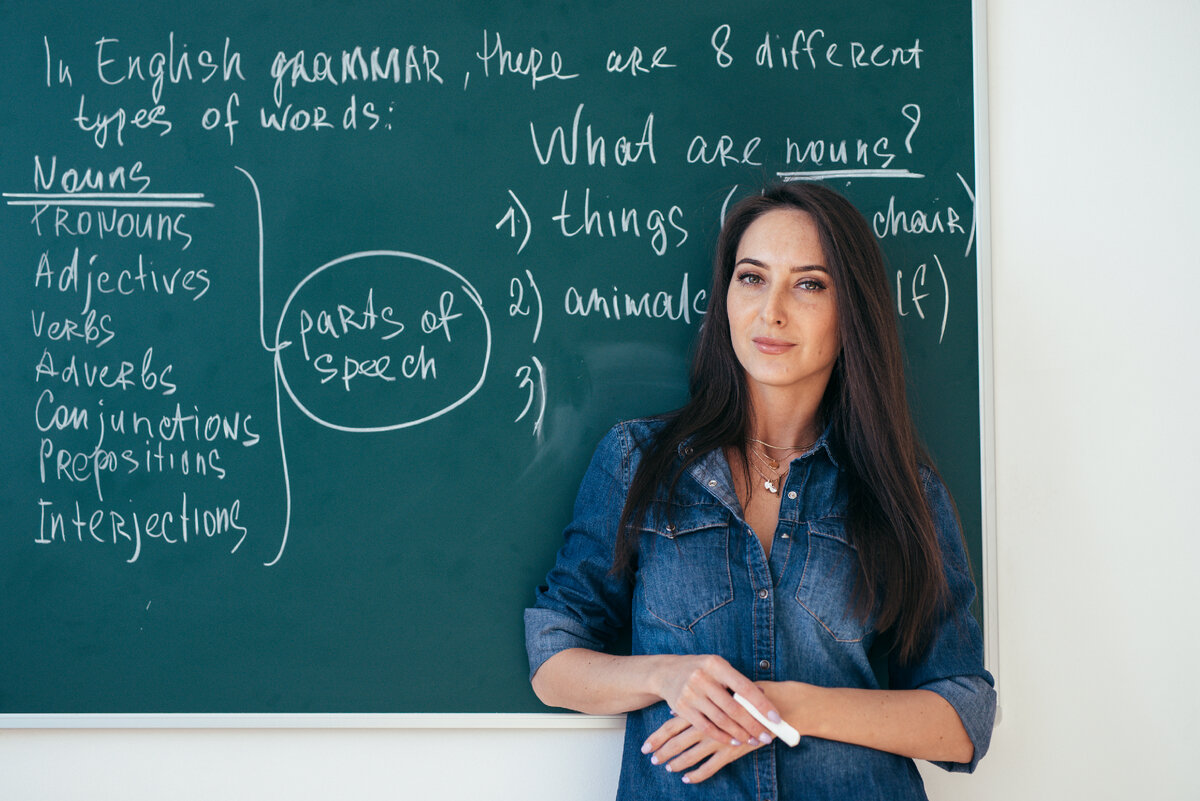 In English grammar, there are 8 different
types of words:
Nouns
Pronouns
Adjectives
Verbs
Adverbs
Conjunctions
Prepositions
Interjections
parts of
speech
What are nouns?
1) things ( chair)
2) animals )
3)